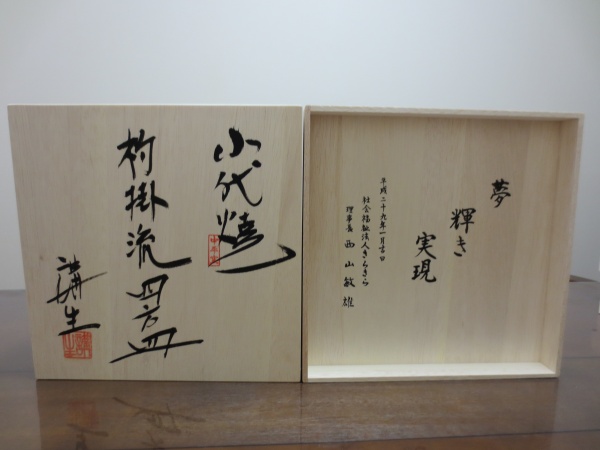 小代焼
杓掛流四方皿
講生
夢
輝き
実現
平成二十九年一月吉日
社会福祉法人きらきら
理事長 西山敏雄